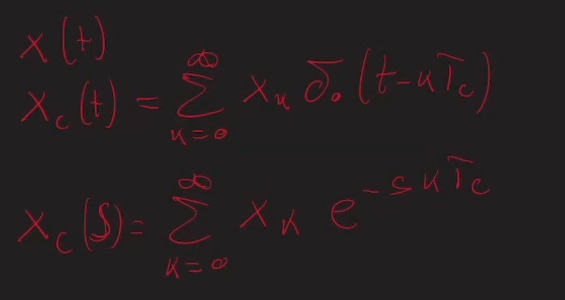 x(t)
x_c(t) = ∑_{k=0}^{∞} x_k δ_0(t-kT_c)
X_c(s) = ∑_{k=0}^{∞} x_k e^{-skT_c}